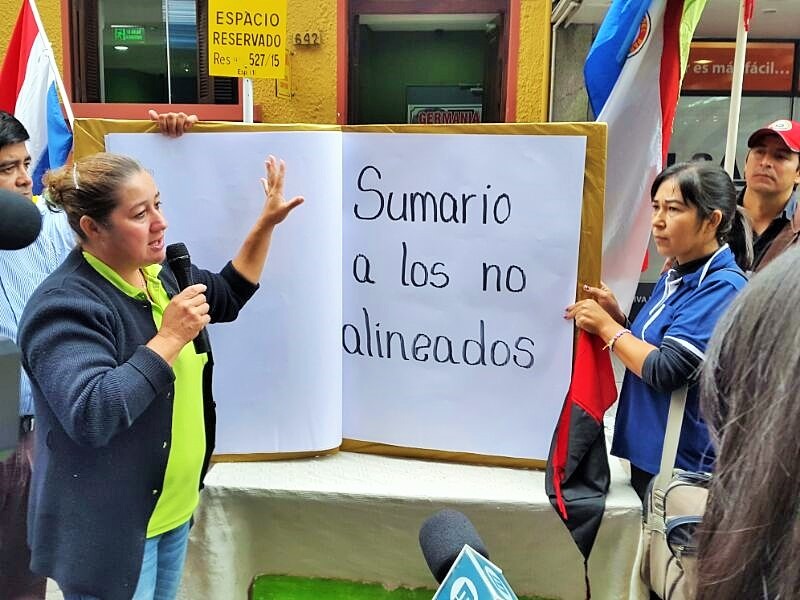 ESPACIO
RESERVADO
Res. 527/15
642
er es más fácil...
GERMANIA
Sumario
a los no
alineados